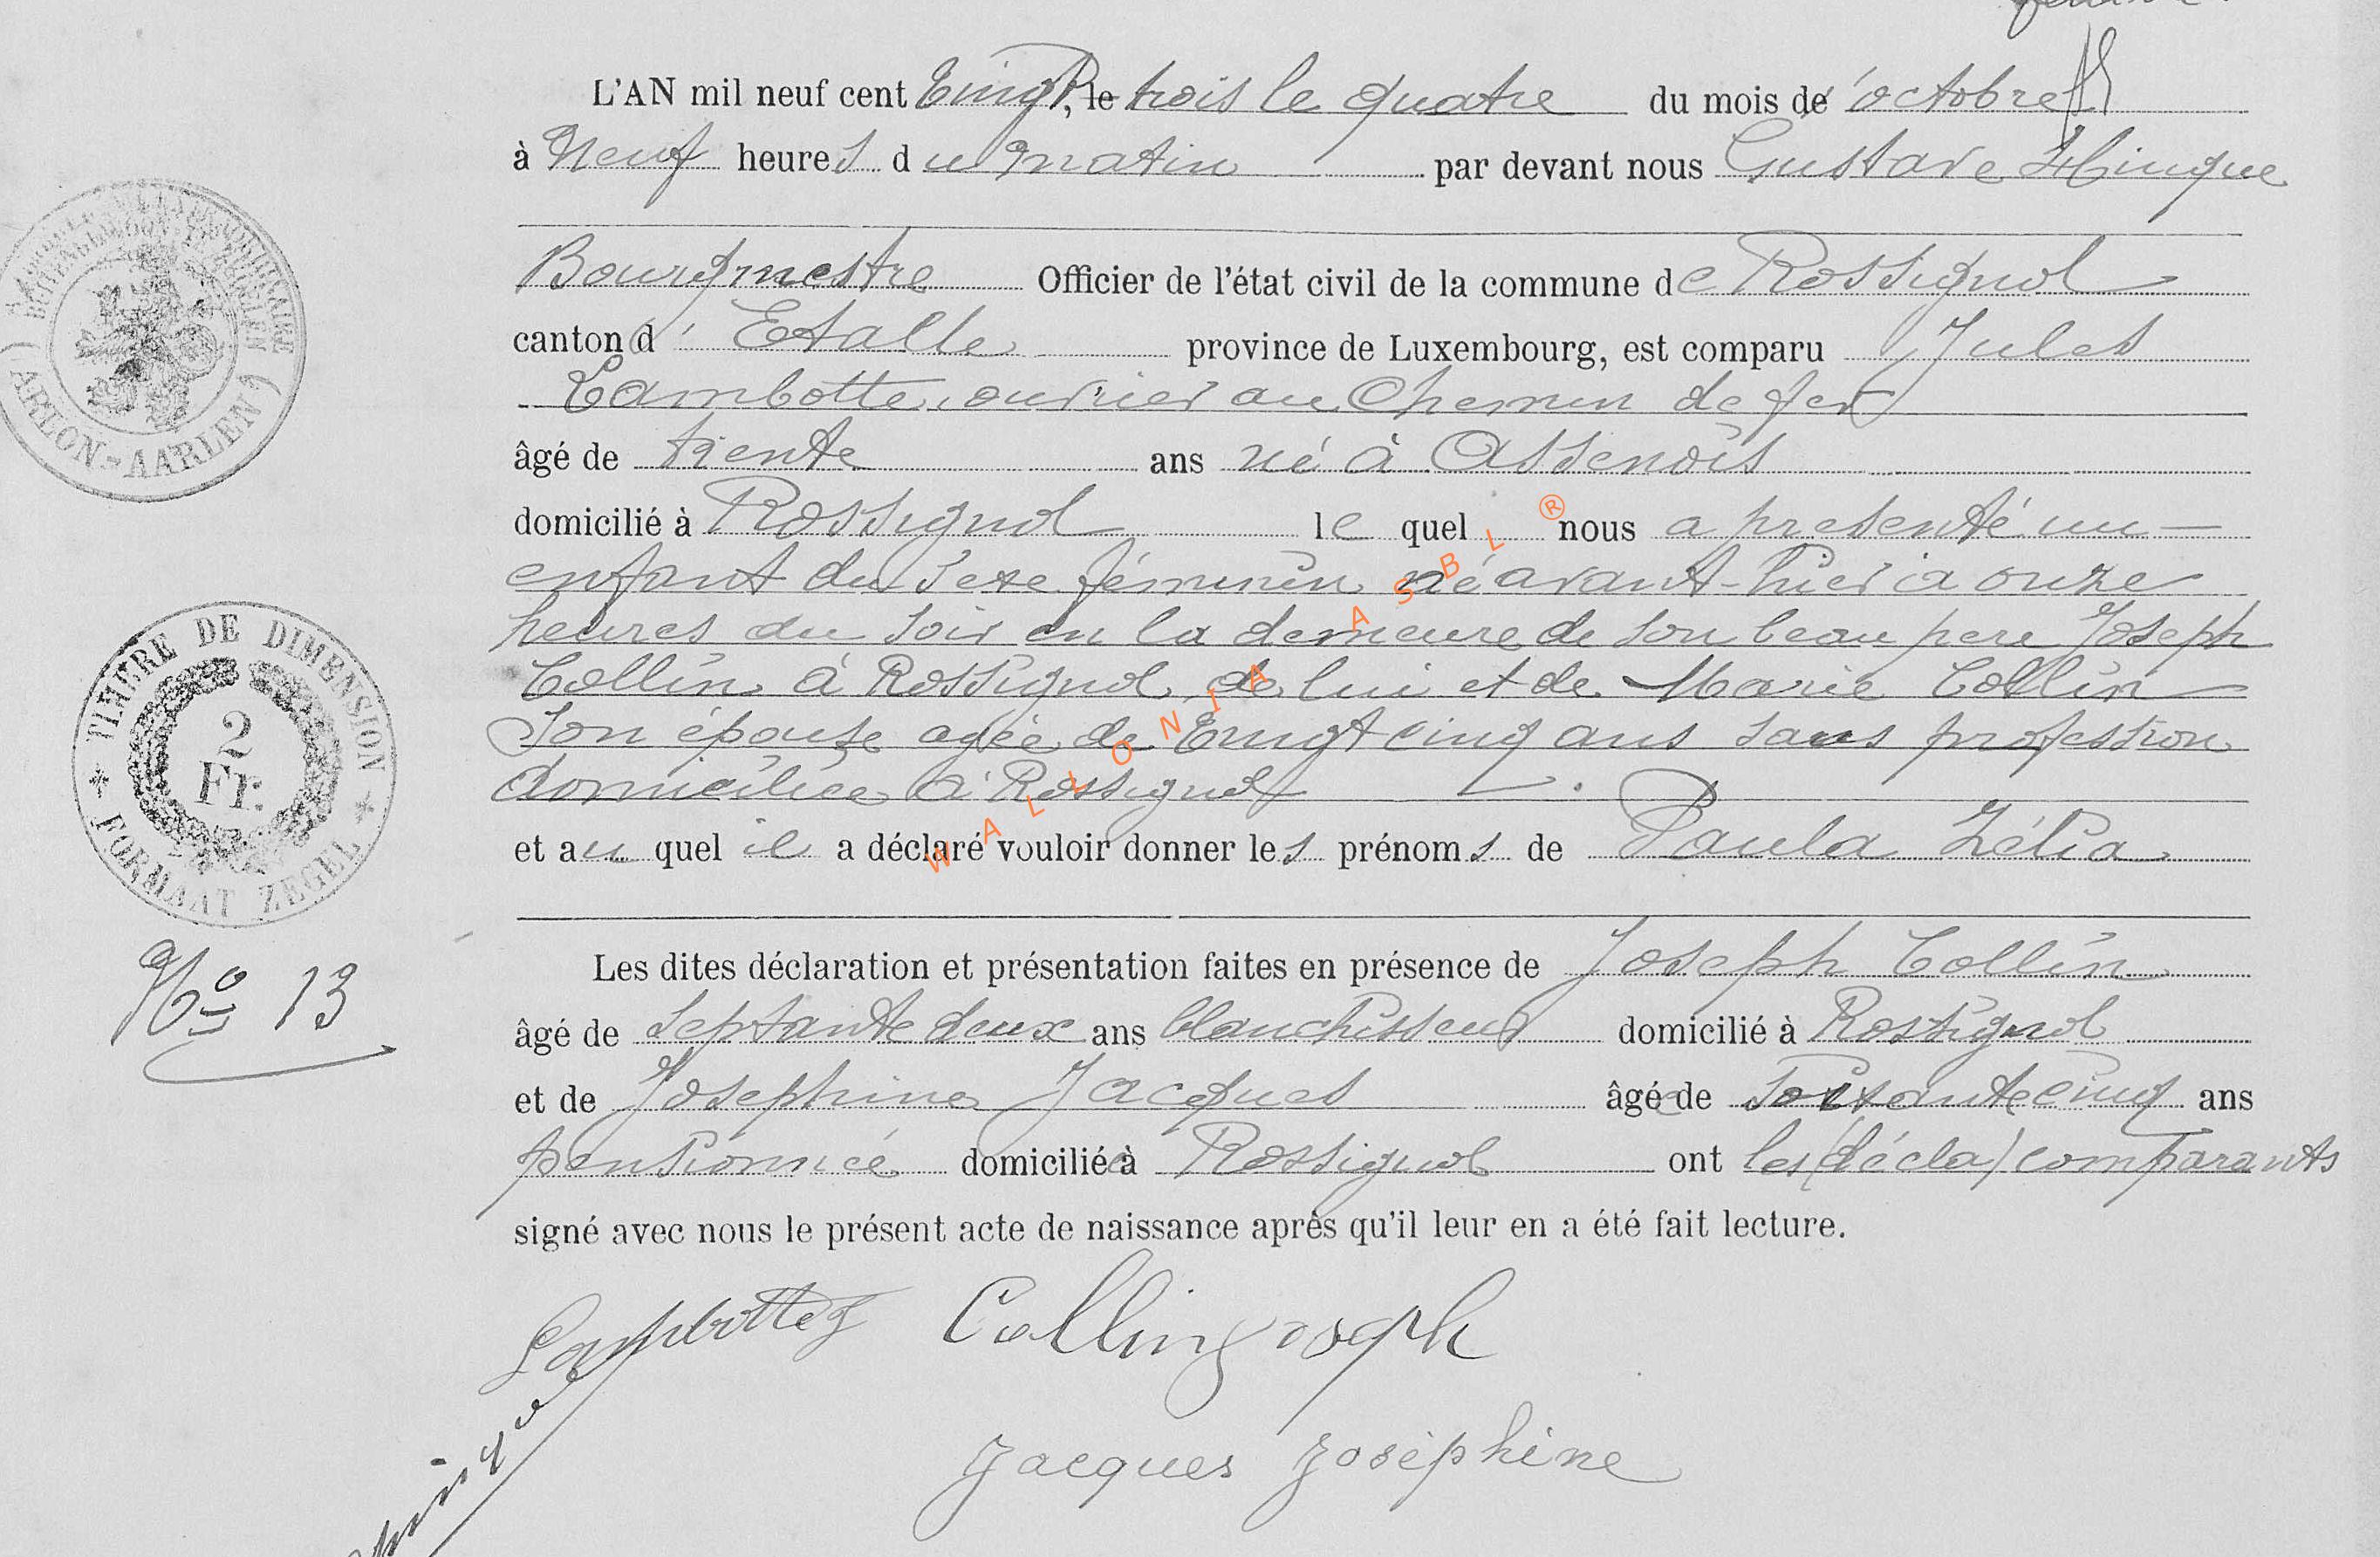 L'AN mil neuf cent Vingt, le trois le quatre du mois de octobre
à Neuf heures du matin par devant nous Gustave Hinque
Bourgmestre Officier de l'état civil de la commune de Rossignol
canton d' Etalle province de Luxembourg, est comparu Jules
Lambotte, ouvrier au Chemin de fer
âgé de trente ans né à Assenois
domicilié à Rossignol le quel nous a présenté un
enfant du sexe féminin né avant-hier à onze
heures du soir en la demeure de son beau pere Joseph
Collin à Rossignol, de lui et de Marie Collin
son épouse agée de Vingt cinq ans sans profession
domiciliée à Rossignol.
et au quel il a déclaré vouloir donner les prénoms de Paula Zélia
Les dites déclaration et présentation faites en présence de Joseph Collin
âgé de septante deux ans blanchisseur domicilié à Rossignol
et de Josephine Jacques âgée de soixante cinq ans
pensionnée domiciliée à Rossignol ont les (décla) comparants
signé avec nous le présent acte de naissance après qu'il leur en a été fait lecture.
Lambotte J Collin Joseph
Jacques Joséphine
ARLON-AARLEN
TIMBRE DE DIMENSION
2
Fr.
FORMAAT ZEGEL
No 13
WALLONIA ASBL ®